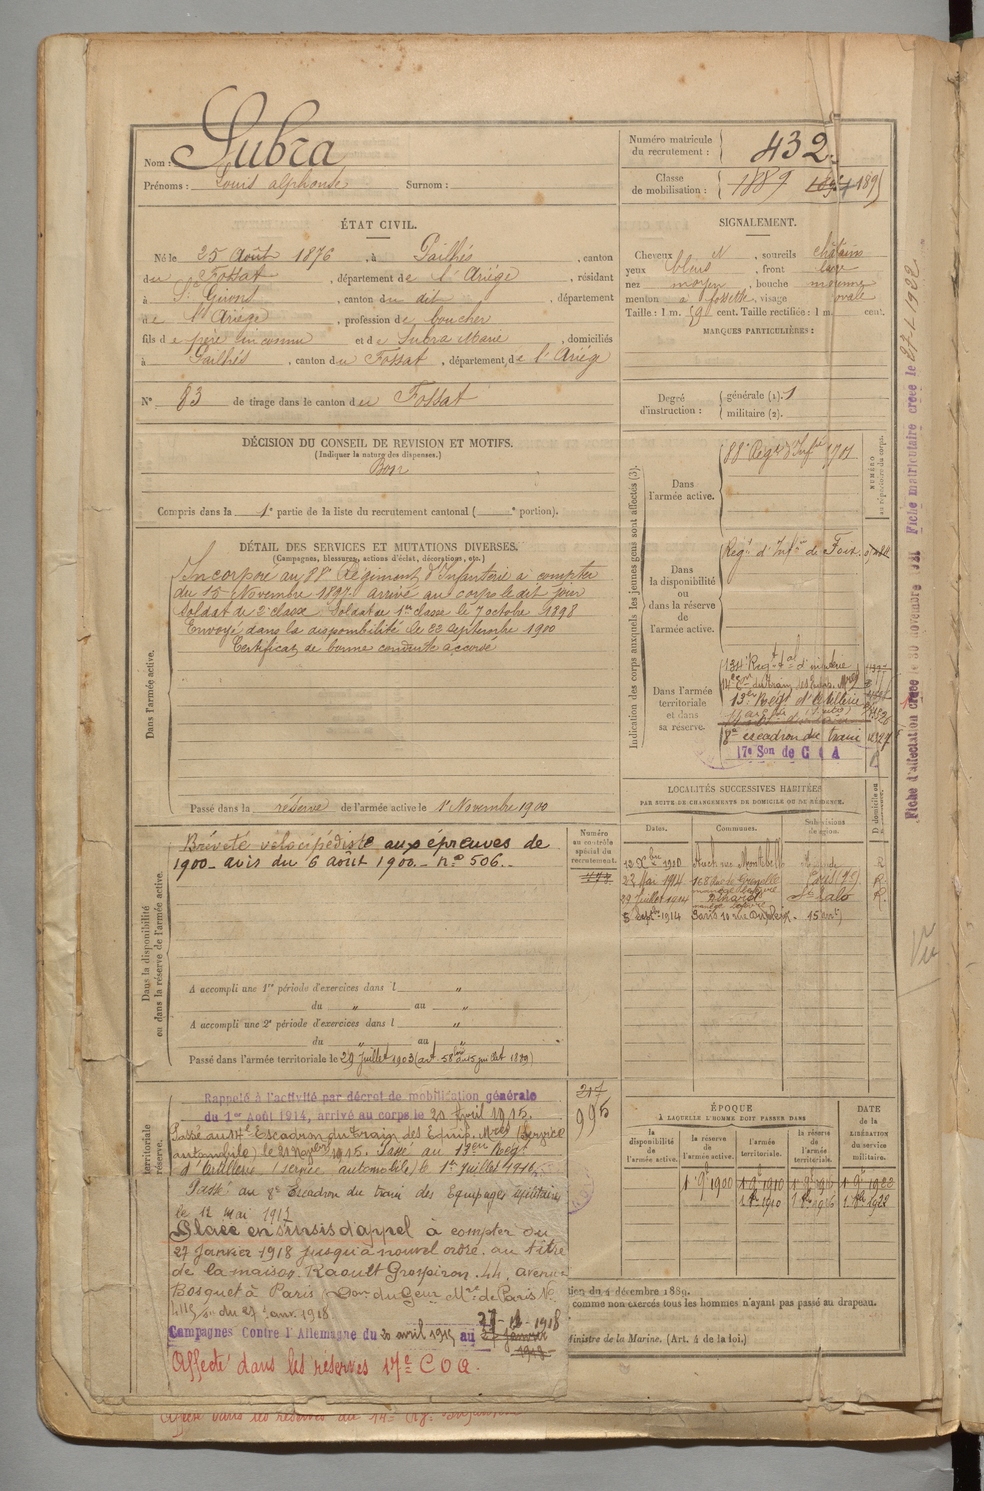 Nom : Subra
Prénoms : Louis alphonse Surnom :
Numéro matricule du recrutement : 432.
Classe de mobilisation : 1889
ÉTAT CIVIL.
Né le 25 Août 1876, à Pailhès, canton
du Fossat, département de l'Ariège, résidant
à St Girons, canton du dit, département
de l'Ariège, profession de boucher
fils de père inconnu et de Subra Marie, domiciliés
à Pailhès, canton du Fossat, département de l'Ariège
N° 83 de tirage dans le canton du Fossat
SIGNALEMENT.
Cheveux N, sourcils châtains
yeux bleus, front large
nez moyen, bouche moyenne
menton à fossette, visage ovale
Taille : 1 m. cent. Taille rectifiée : 1 m. cent.
MARQUES PARTICULIÈRES :
Degré d'instruction : générale (1). 1
militaire (2).
DÉCISION DU CONSEIL DE REVISION ET MOTIFS.
(Indiquer la nature des dispenses.)
Bon
Compris dans la 1e partie de la liste du recrutement cantonal ( e portion).
DÉTAIL DES SERVICES ET MUTATIONS DIVERSES.
(Campagnes, blessures, actions d'éclat, décorations, etc.)
Dans l'armée active.
Incorporé au 88e Régiment d'Infanterie à compter
du 15 Novembre 1897 arrivé au corps le dit jour
Soldat de 2e classe. Soldat de 1re classe le 7 octobre 1898
Envoyé dans la disponibilité le 23 septembre 1900
Certificat de bonne conduite accordé
Passé dans la réserve de l'armée active le 1er Novembre 1900
Indication des corps auxquels les jeunes gens sont affectés (3).
NUMÉRO au répertoire du corps.
Dans l'armée active.
88e Régt d'Infie
Dans la disponibilité ou dans la réserve de l'armée active.
Régt d'Infie de Foix.
Dans l'armée territoriale et dans sa réserve.
134e Régt tal d'infanterie
13e Régt d'Artillerie
8e escadron du train
17e Son de C O A
Dans la disponibilité ou dans la réserve de l'armée active.
Breveté vélocipédiste aux épreuves de
1900 avis du 6 août 1900 n° 506.
Numéro au contrôle spécial du recrutement.
A accompli une 1re période d'exercices dans l „
du „ au „
A accompli une 2e période d'exercices dans l „
du „ au „
Passé dans l'armée territoriale le 29 Juillet 1903 (art. 58 loi du 15 juillet 1889)
LOCALITÉS SUCCESSIVES HABITÉES
PAR SUITE DE CHANGEMENTS DE DOMICILE OU DE RÉSIDENCE.
Dates. Communes. Subdivisions de région. D. domicile ou R.
13 Xbre 1910 Auch rue Montebello
23 Mai 1914 168 Rue de Grenelle Paris R.
29 Juillet 1914 St Lalo R.
8 Septbre 1914 Paris 10 rue Dupleix
territoriale réserve.
Rappelé à l'activité par décret de mobilisation générale
du 1er Août 1914, arrivé au corps le 20 Avril 1915.
Passé au 14e Escadron du train des Equip. Mres (Service
automobile) le 1915. Passé au 13eme Régt
d'Artillerie (service automobile) le 1er Juillet 1916.
Passé au 8e Escadron du train des Equipages militaires
le 12 mai 1917
Placé en sursis d'appel à compter du
27 Janvier 1918 jusqu'à nouvel ordre, au titre
de la maison Raoult Grospiron, 44, avenue
Bosquet à Paris
du 27 janv. 1918
Campagnes Contre l'Allemagne du 20 avril 1915 au
Affecté dans les réserves 17e C O A.
217
995
ÉPOQUE
À LAQUELLE L'HOMME DOIT PASSER DANS
la disponibilité de l'armée active. la réserve de l'armée active. l'armée territoriale. la réserve de l'armée territoriale.
DATE de la LIBÉRATION du service militaire.
1 9bre 1900 1 9bre 1910 1 9bre 1916 1 9bre 1922
1 8bre 1910 1 8bre 1916 1 8bre 1928
tion du 4 décembre 1889.
comme non exercés tous les hommes n'ayant pas passé au drapeau.
Ministre de la Marine. (Art. 4 de la loi.)
Fiche d'affectation créée le 30 novembre
Fiche matriculaire créée le
Vu